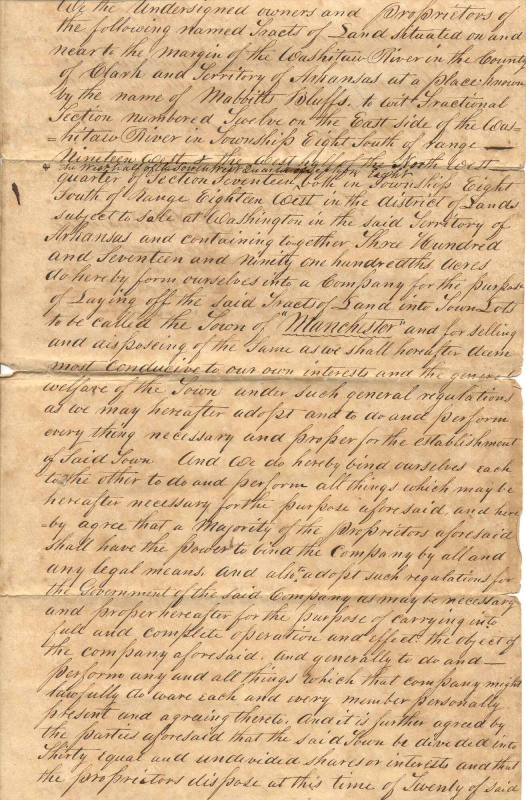 We the Undersigned owners and Proprietors of
the following named Tracts of Land situated on and
near to the margin of the Washitaw River in the County
of Clark and Territory of Arkansas at a place known
by the name of Mabbitts Bluffs. to wit Fractional
Section numbered Twelve on the East side of the Was=
=hitaw River in Township Eight South of range —
Nineteen West & the West half of the North West
& the West half of the South West Quarter of Section Eight
quarter of Section Seventeen, both in Township Eight
South of Range Eighteen West in the district of Lands
subject to sale at Washington in the said Territory of
Arkansas and containing together Three Hundred
and Seventeen and ninity one hundredths acres
do hereby form ourselves into a Company for the purpose
of Laying off the said Tracts of Land into Town Lots
to be called the Town of "Manchester" and for selling
and disposeing of the same as we shall hereafter deem
most conducive to our own interests and the general
welfare of the Town under such general regulations
as we may hereafter adopt and to do and perform
every thing necessary and proper for the establishment
of Said Town And We do hereby bind ourselves each
to the other to do and perform all things which may be
hereafter necessary for the purpose aforesaid and here
=by agree that a Majority of the Proprietors aforesaid
shall have the power to bind the Company by all and
any legal means. And also adopt such regulations for
the Government of the said Company as may be necessary
and proper hereafter for the purpose of carrying into
full and complete operation and effect the object of
the company aforesaid. And generally to do and —
perform any and all things which that company might
lawfully do ware each and every member personally
present and agreeing thereto. And it is further agreed by
the parties aforesaid that the said Town be divided into
Thirty equal and undivided shares or interests and that
the proprietors dispose at this time of Twenty of said